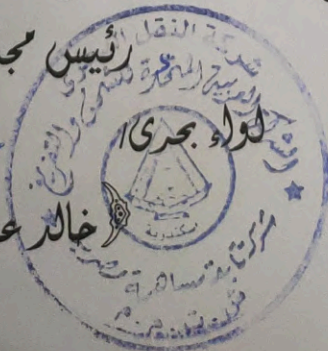 رئيس مجـ
لواء بحرى/
خالد عـ
شركة النقل
العربية المتحدة للشحن والتفريغ
اسكندرية
شركة تابعة مساهمة مصرية